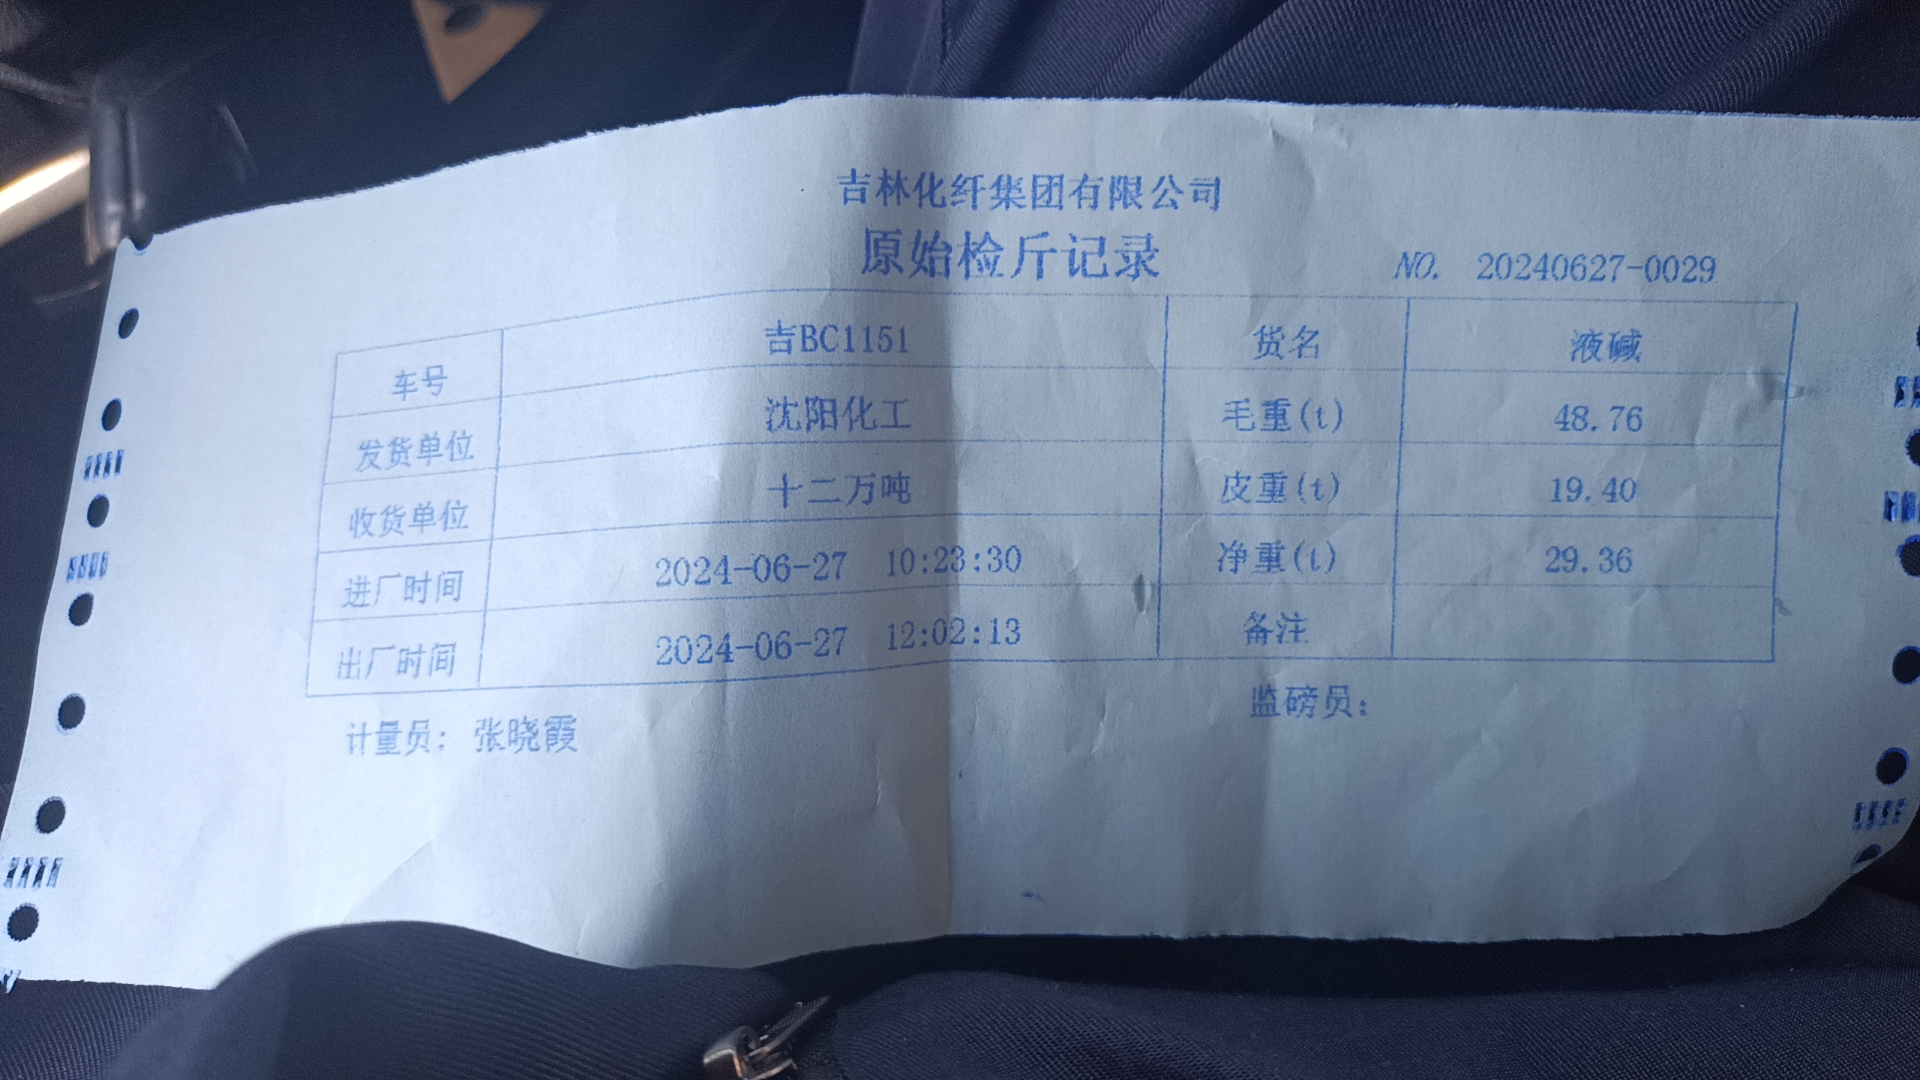 吉林化纤集团有限公司
原始检斤记录
NO. 20240627-0029
车号 吉BC1151 货名 液碱
发货单位 沈阳化工 毛重(t) 48.76
收货单位 十二万吨 皮重(t) 19.40
进厂时间 2024-06-27 10:23:30 净重(t) 29.36
出厂时间 2024-06-27 12:02:13 备注
计量员: 张晓霞 监磅员: